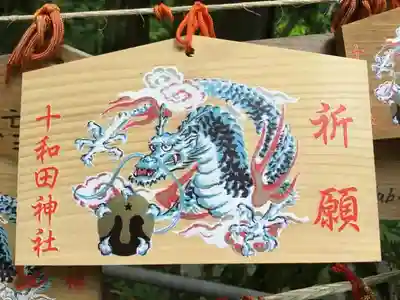 祈願
十和田神社